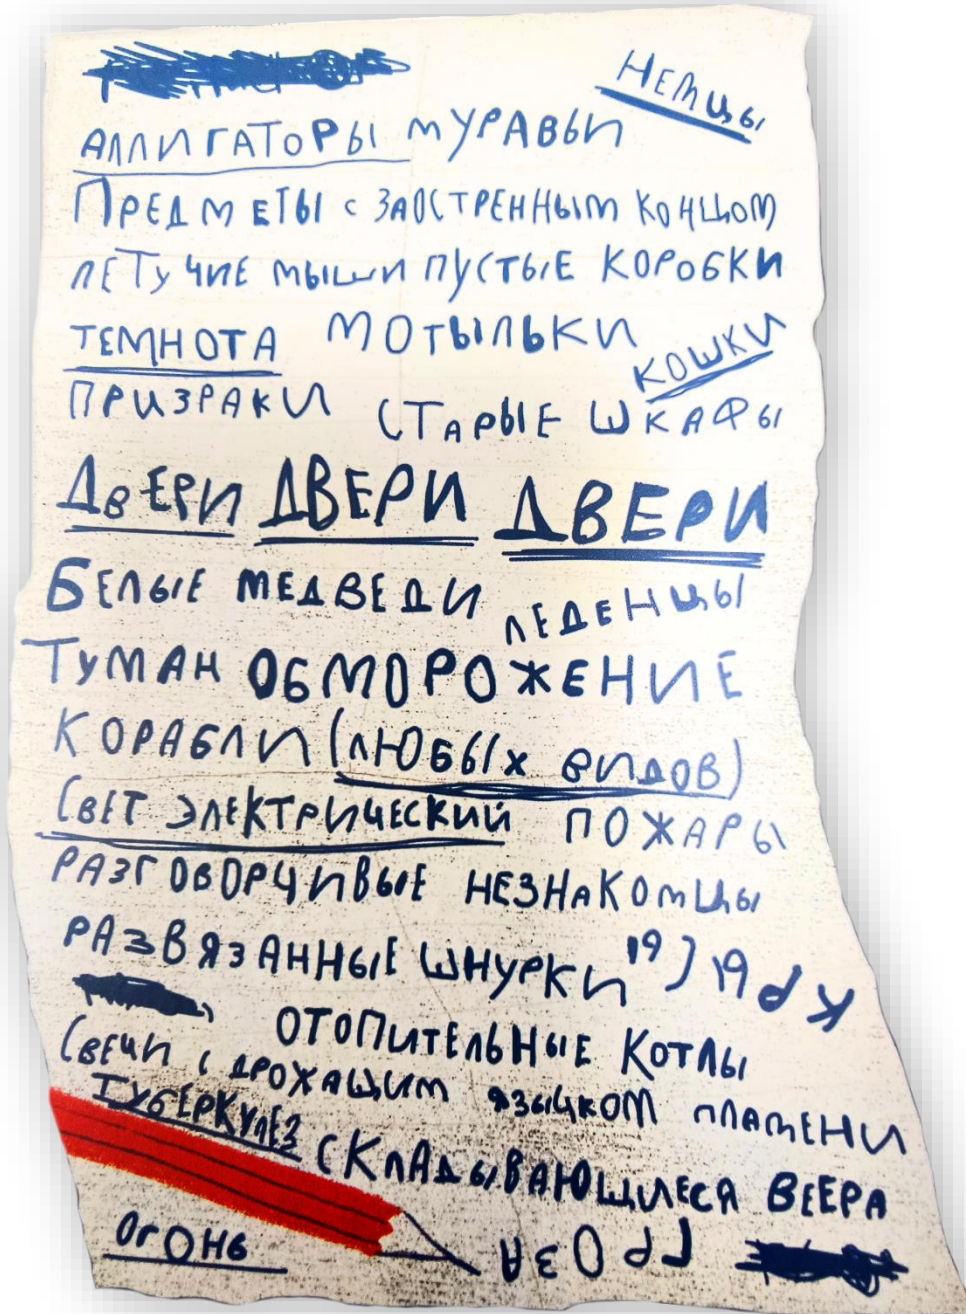 НЕМЦЫ
АЛЛИГАТОРЫ МУРАВЬИ
ПРЕДМЕТЫ С ЗАОСТРЕННЫМ КОНЦОМ
ЛЕТУЧИЕ МЫШИ ПУСТЫЕ КОРОБКИ
ТЕМНОТА МОТЫЛЬКИ
КОШКИ
ПРИЗРАКИ СТАРЫЕ ШКАФЫ
ДВЕРИ ДВЕРИ ДВЕРИ
БЕЛЫЕ МЕДВЕДИ ЛЕДЕНЦЫ
ТУМАН ОБМОРОЖЕНИЕ
КОРАБЛИ (ЛЮБЫХ ВИДОВ)
СВЕТ ЭЛЕКТРИЧЕСКИЙ ПОЖАРЫ
РАЗГОВОРЧИВЫЕ НЕЗНАКОМЦЫ
РАЗВЯЗАННЫЕ ШНУРКИ КРЫСЫ
ОТОПИТЕЛЬНЫЕ КОТЛЫ
СВЕЧИ С ДРОЖАЩИМ ЯЗЫЧКОМ ПЛАМЕНИ
ТУБЕРКУЛЕЗ СКЛАДЫВАЮЩИЕСЯ ВЕЕРА
ОГОНЬ ГРОЗА